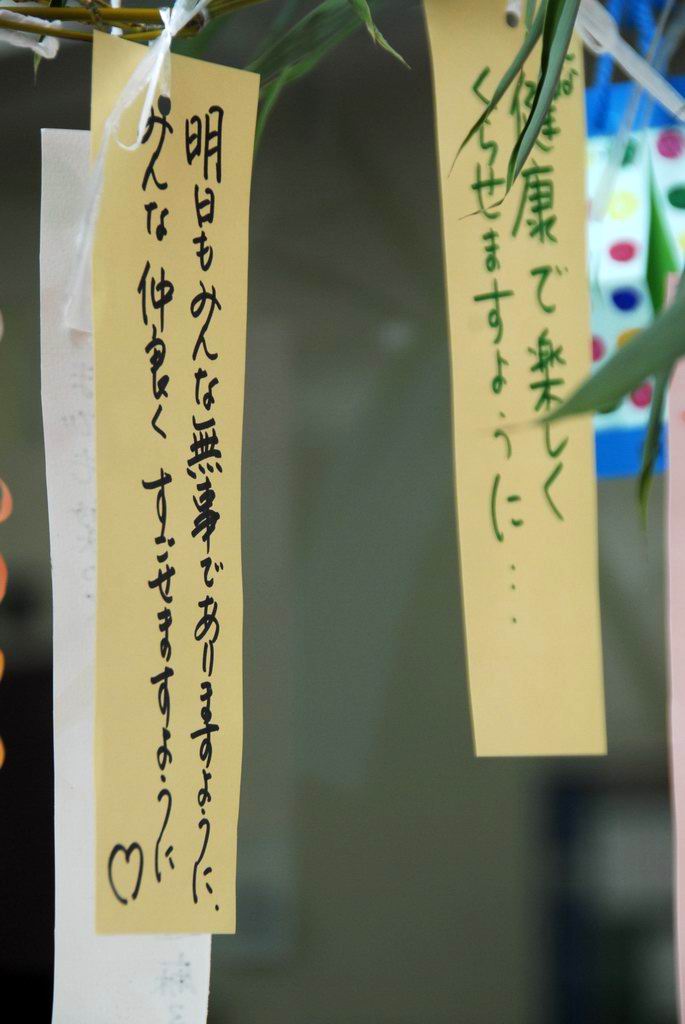 明日もみんな無事でありますように.
みんな仲良くすごせますように♡
健康で楽しく
くらせますように…